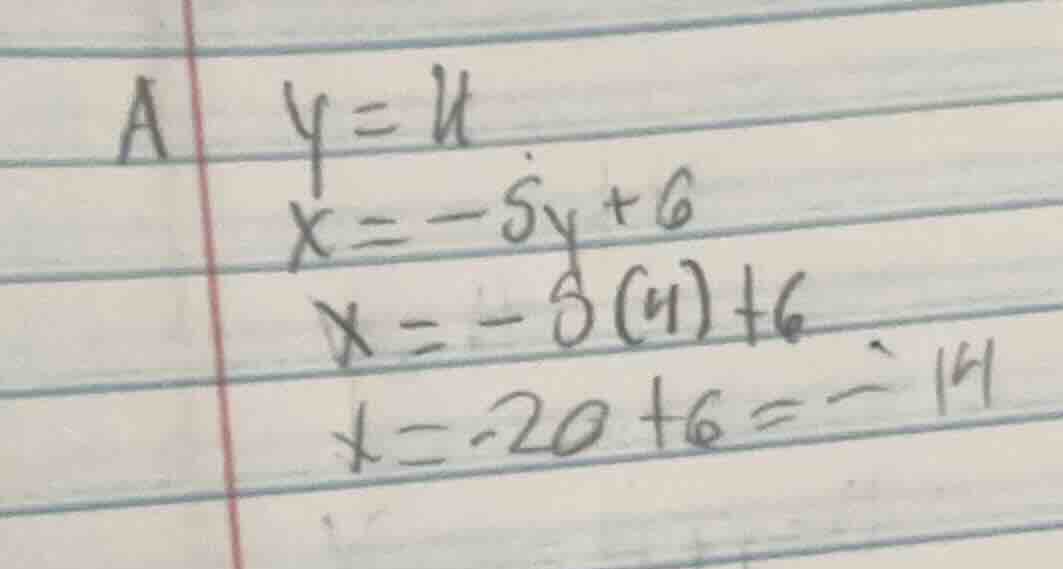 A y = 4
x = -5y + 6
x = -5(4) + 6
x = -20 + 6 = -14